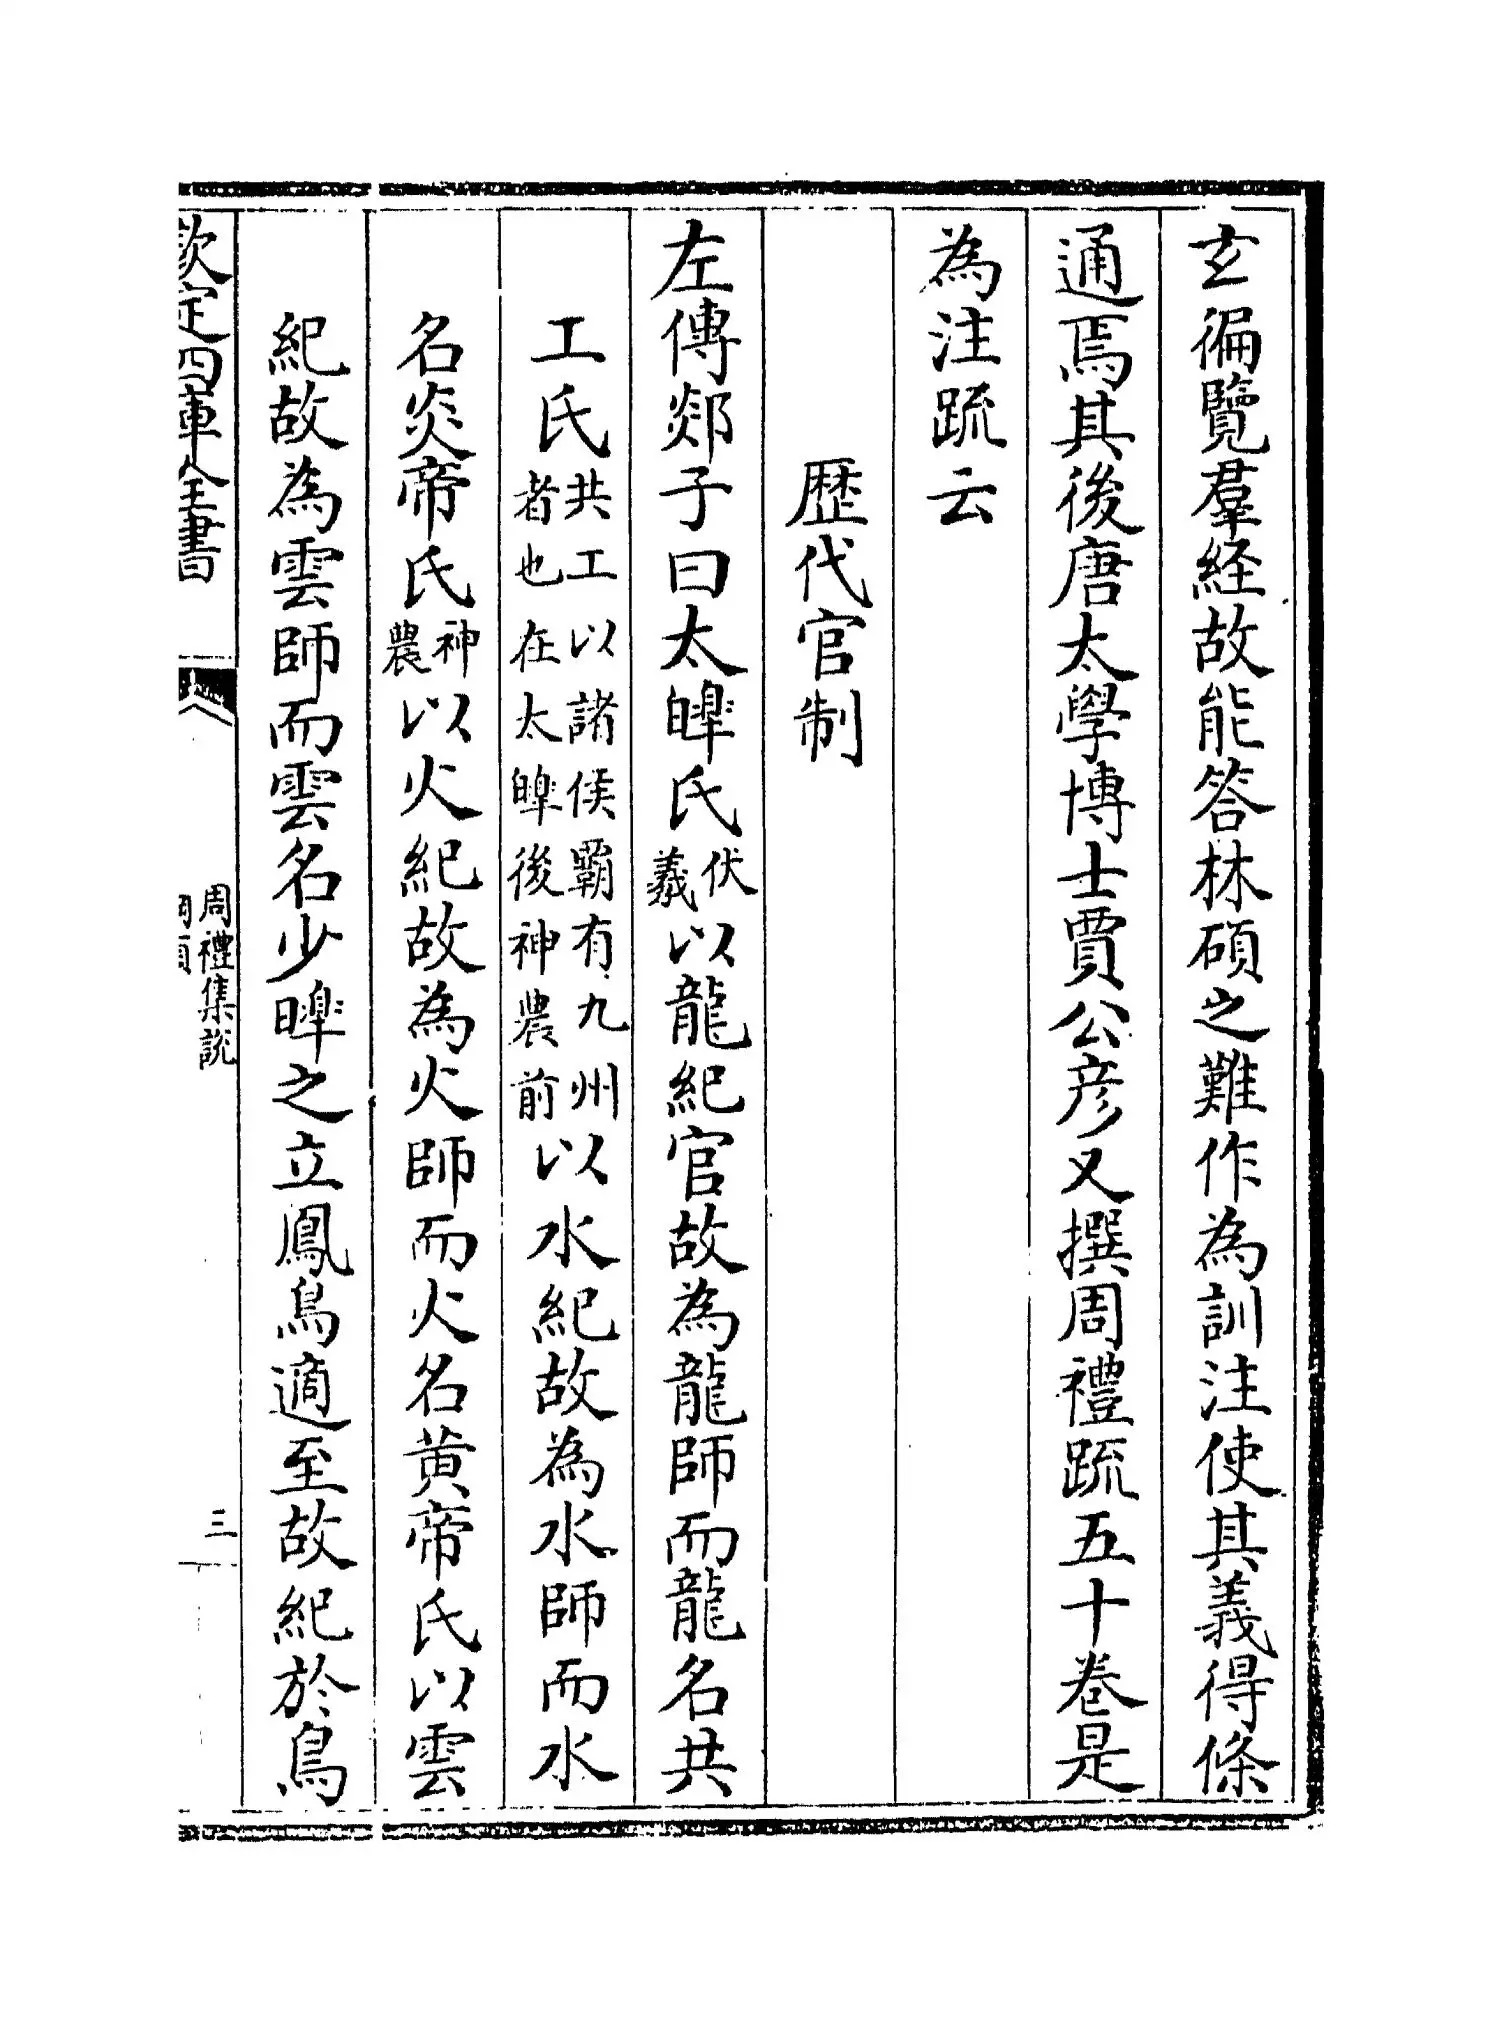 玄徧覽羣經故能答林碩之難作為訓注使其義得條
通焉其後唐太學博士賈公彦又撰周禮䟽五十卷是
為注䟽云
歴代官制
左傳郯子曰太皥氏伏羲以龍紀官故為龍師而龍名共
工氏共工以諸侯霸有九州者也在太皥後神農前以水紀故為水師而水
名炎帝氏神農以火紀故為火師而火名黄帝氏以雲
紀故為雲師而雲名少皥之立鳳鳥適至故紀於鳥
欽定四庫全書
周禮集說
綱領
三